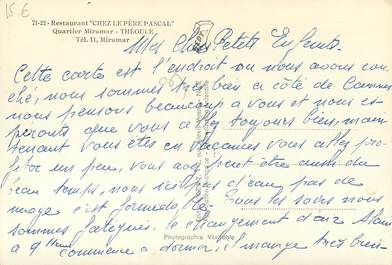 15 €
71-22 - Restaurant "CHEZ LE PÈRE PASCAL"
Quartier Miramar - THÉOULE
Tél. 11, Miramar
Mes Chers Petits Enfants.
Cette carte est l'endroit ou nous avons cou-
ché, nous sommes très bien a côté de Cannes
nous pensons beaucoup a vous et nous es-
perons que vous allez toujours bien, main
tenant vous êtes en vacances vous allez pro-
fiter un peu, vous avez peut être aussi du
beau temps, nous ici pas d'eau pas de
nuage c'est formidable. Tous les soirs nous
sommes fatigués, le changement d'air Alain
a 9 commence a dormir, il mange très bien
Photographie Véritable